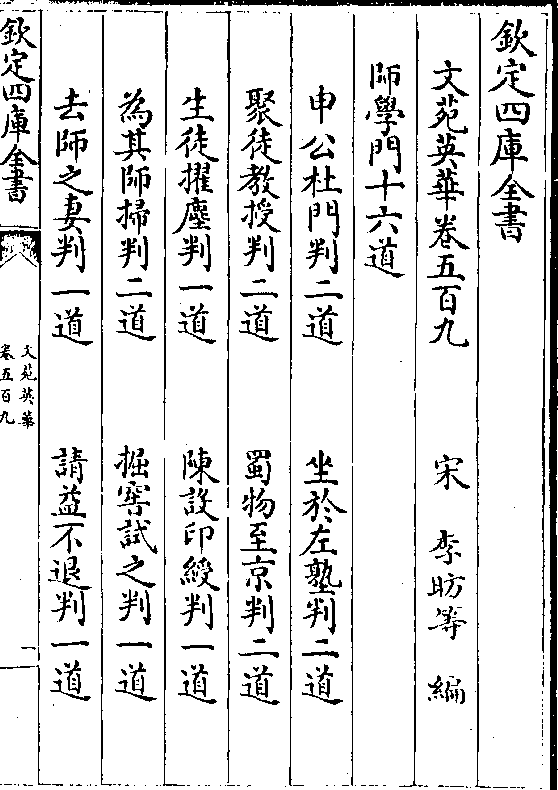 欽定四庫全書
文苑英華卷五百九　宋　李昉等　編
師學門十六道
申公杜門判二道　坐於左塾判二道
聚徒教授判二道　蜀物至京判二道
生徒擢塵判一道　陳設印綬判一道
為其師掃判二道　掘窖試之判一道
去師之妻判一道　請益不退判一道
欽定四庫全書
文苑英華
卷五百九
一